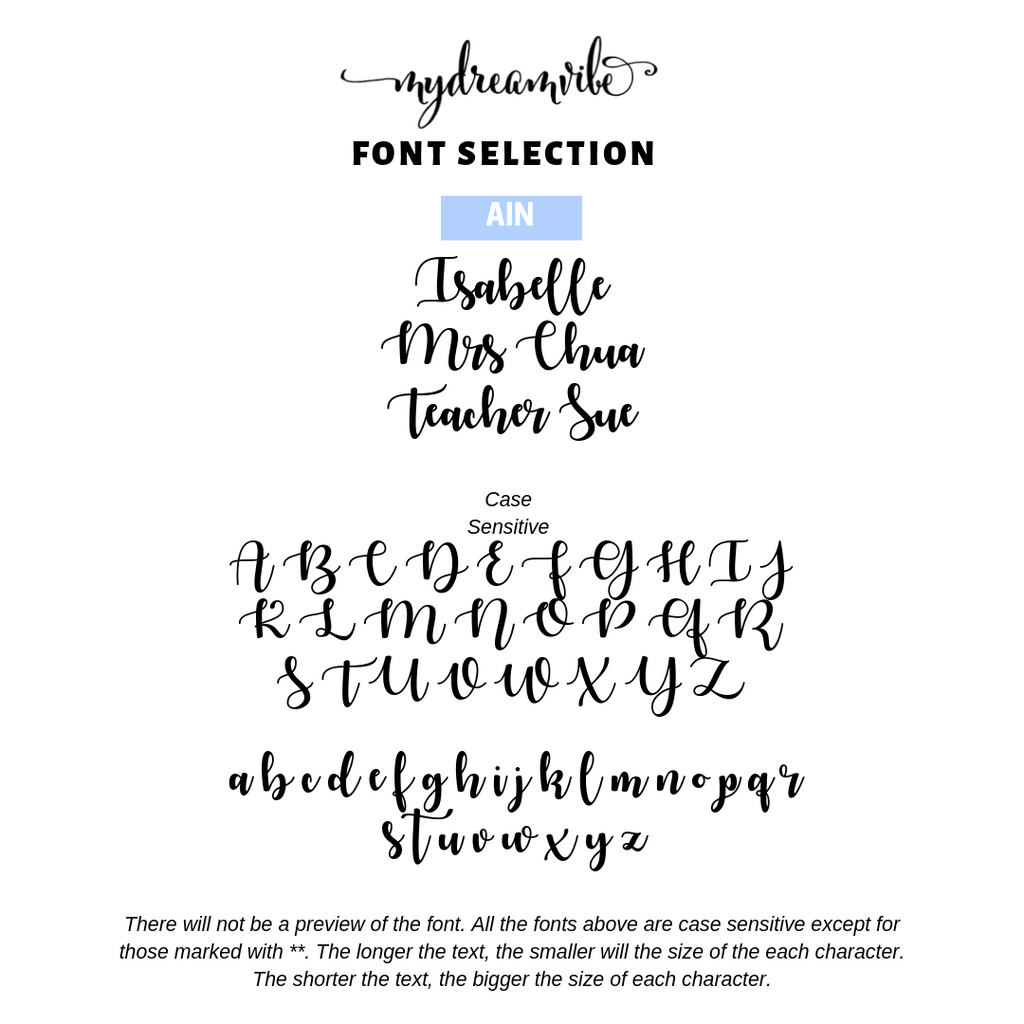 mydreamvibe
FONT SELECTION
AIN
Isabelle
Mrs Chua
Teacher Sue
Case
Sensitive
A B C D E F G H I J
K L M N O P Q R
S T U V W X Y Z
a b c d e f g h i j k l m n o p q r
s t u v w x y z
There will not be a preview of the font. All the fonts above are case sensitive except for
those marked with **. The longer the text, the smaller will the size of the each character.
The shorter the text, the bigger the size of each character.